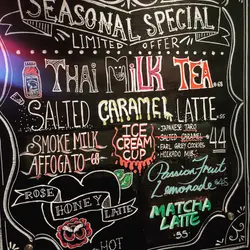 SEASONAL SPECIAL
LIMITED OFFER
THAI MILK TEA
SALTED CARAMEL LATTE
SMOKE MILK
AFFOGATO
ICE
CREAM
CUP
JAPANESE TARO
SALTED CARAMEL
EARL GREY COOKIES
HOKKAIDO MILK
44
Passion Fruit
Lemonade
ROSE
HONEY
LATTE
HOT
MATCHA
LATTE
55